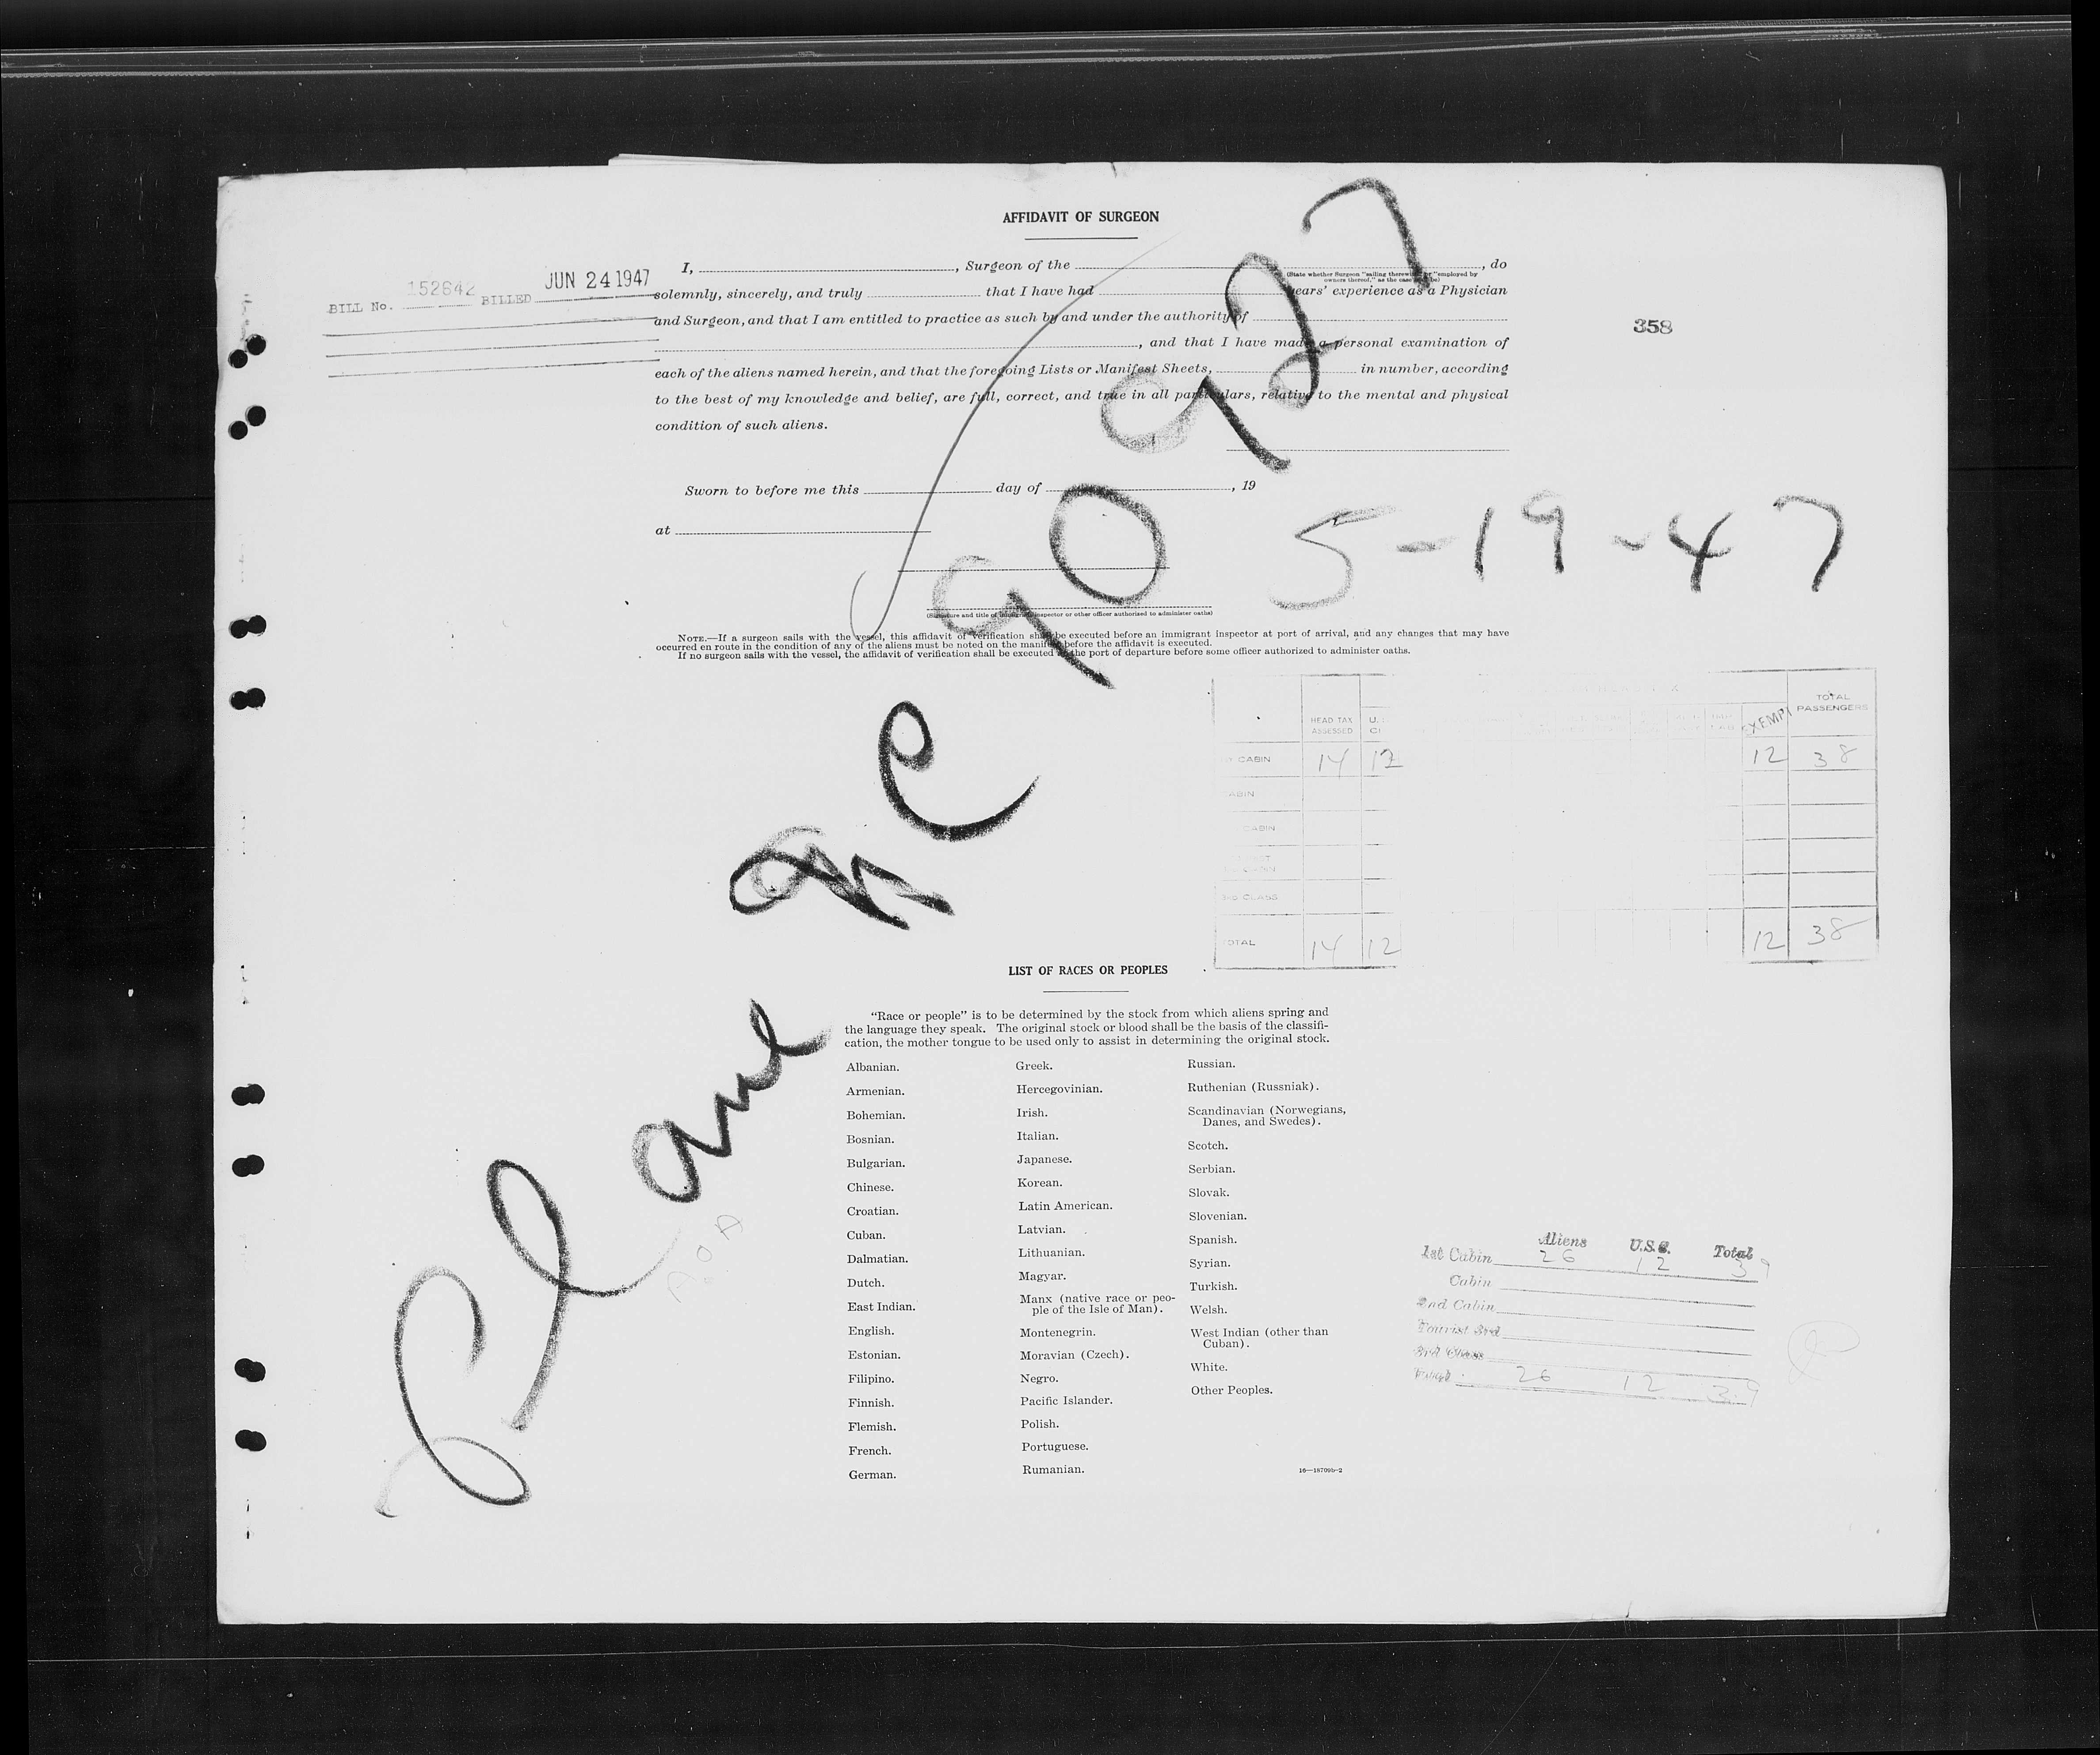 AFFIDAVIT OF SURGEON
I, , Surgeon of the , do
(State whether Surgeon "sailing therewith" or "employed by
owners thereof," as the case may be)
BILL No. 152642 BILLED JUN 24 1947
solemnly, sincerely, and truly that I have had years' experience as a Physician
and Surgeon, and that I am entitled to practice as such by and under the authority of
358
, and that I have made a personal examination of
each of the aliens named herein, and that the foregoing Lists or Manifest Sheets, in number, according
to the best of my knowledge and belief, are full, correct, and true in all particulars, relative to the mental and physical
condition of such aliens.
Sworn to before me this day of , 19
at
5-19-47
(Signature and title of immigrant inspector or other officer authorized to administer oaths)
NOTE.—If a surgeon sails with the vessel, this affidavit of verification shall be executed before an immigrant inspector at port of arrival, and any changes that may have
occurred en route in the condition of any of the aliens must be noted on the manifest before the affidavit is executed.
If no surgeon sails with the vessel, the affidavit of verification shall be executed at the port of departure before some officer authorized to administer oaths.
Plane NC 90927
HEAD TAX ASSESSED U. EXEMPT TOTAL PASSENGERS
CABIN 14 12 12 38
CABIN
CABIN
3RD CLASS
TOTAL 14 12 12 38
LIST OF RACES OR PEOPLES
"Race or people" is to be determined by the stock from which aliens spring and
the language they speak. The original stock or blood shall be the basis of the classifi-
cation, the mother tongue to be used only to assist in determining the original stock.
Albanian.
Armenian.
Bohemian.
Bosnian.
Bulgarian.
Chinese.
Croatian.
Cuban.
Dalmatian.
Dutch.
East Indian.
English.
Estonian.
Filipino.
Finnish.
Flemish.
French.
German.
Greek.
Hercegovinian.
Irish.
Italian.
Japanese.
Korean.
Latin American.
Latvian.
Lithuanian.
Magyar.
Manx (native race or peo-
ple of the Isle of Man).
Montenegrin.
Moravian (Czech).
Negro.
Pacific Islander.
Polish.
Portuguese.
Rumanian.
Russian.
Ruthenian (Russniak).
Scandinavian (Norwegians,
Danes, and Swedes).
Scotch.
Serbian.
Slovak.
Slovenian.
Spanish.
Syrian.
Turkish.
Welsh.
West Indian (other than
Cuban).
White.
Other Peoples.
16—18709b-2
A.O.A
Aliens U.S.C. Total
1st Cabin 26 12 39
Cabin
2nd Cabin
Tourist 3rd
3rd Class
Total 26 12 39